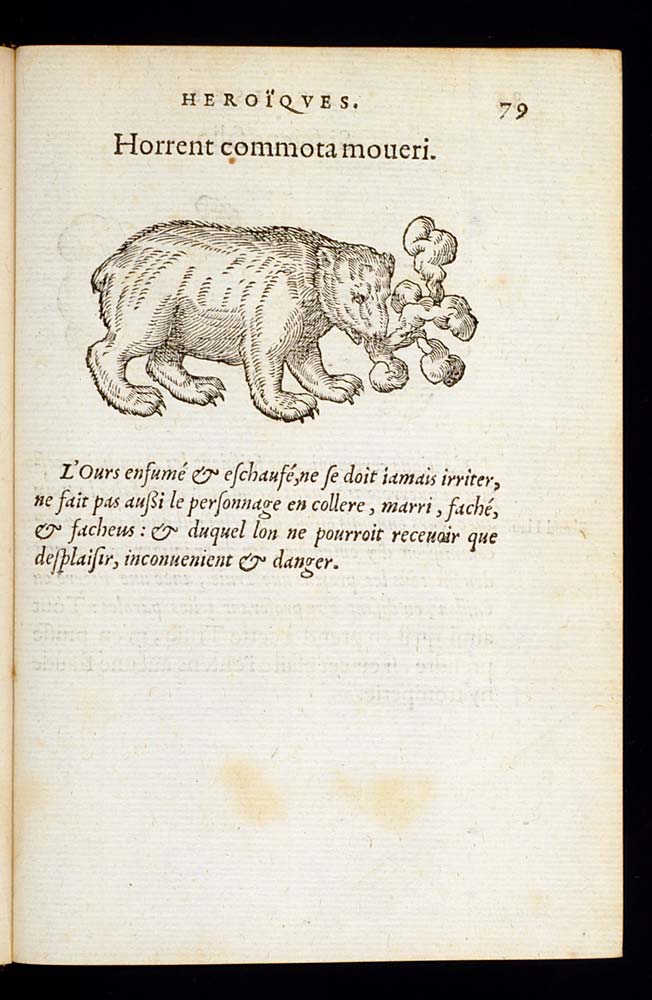 HEROÏQVES.
79
Horrent commota moueri.
L'Ours enfumé & eſchaufé,ne ſe doit iamais irriter,
ne fait pas auſſi le perſonnage en collere, marri, faché,
& facheus : & duquel lon ne pourroit receuoir que
deſplaiſir, inconuenient & danger.